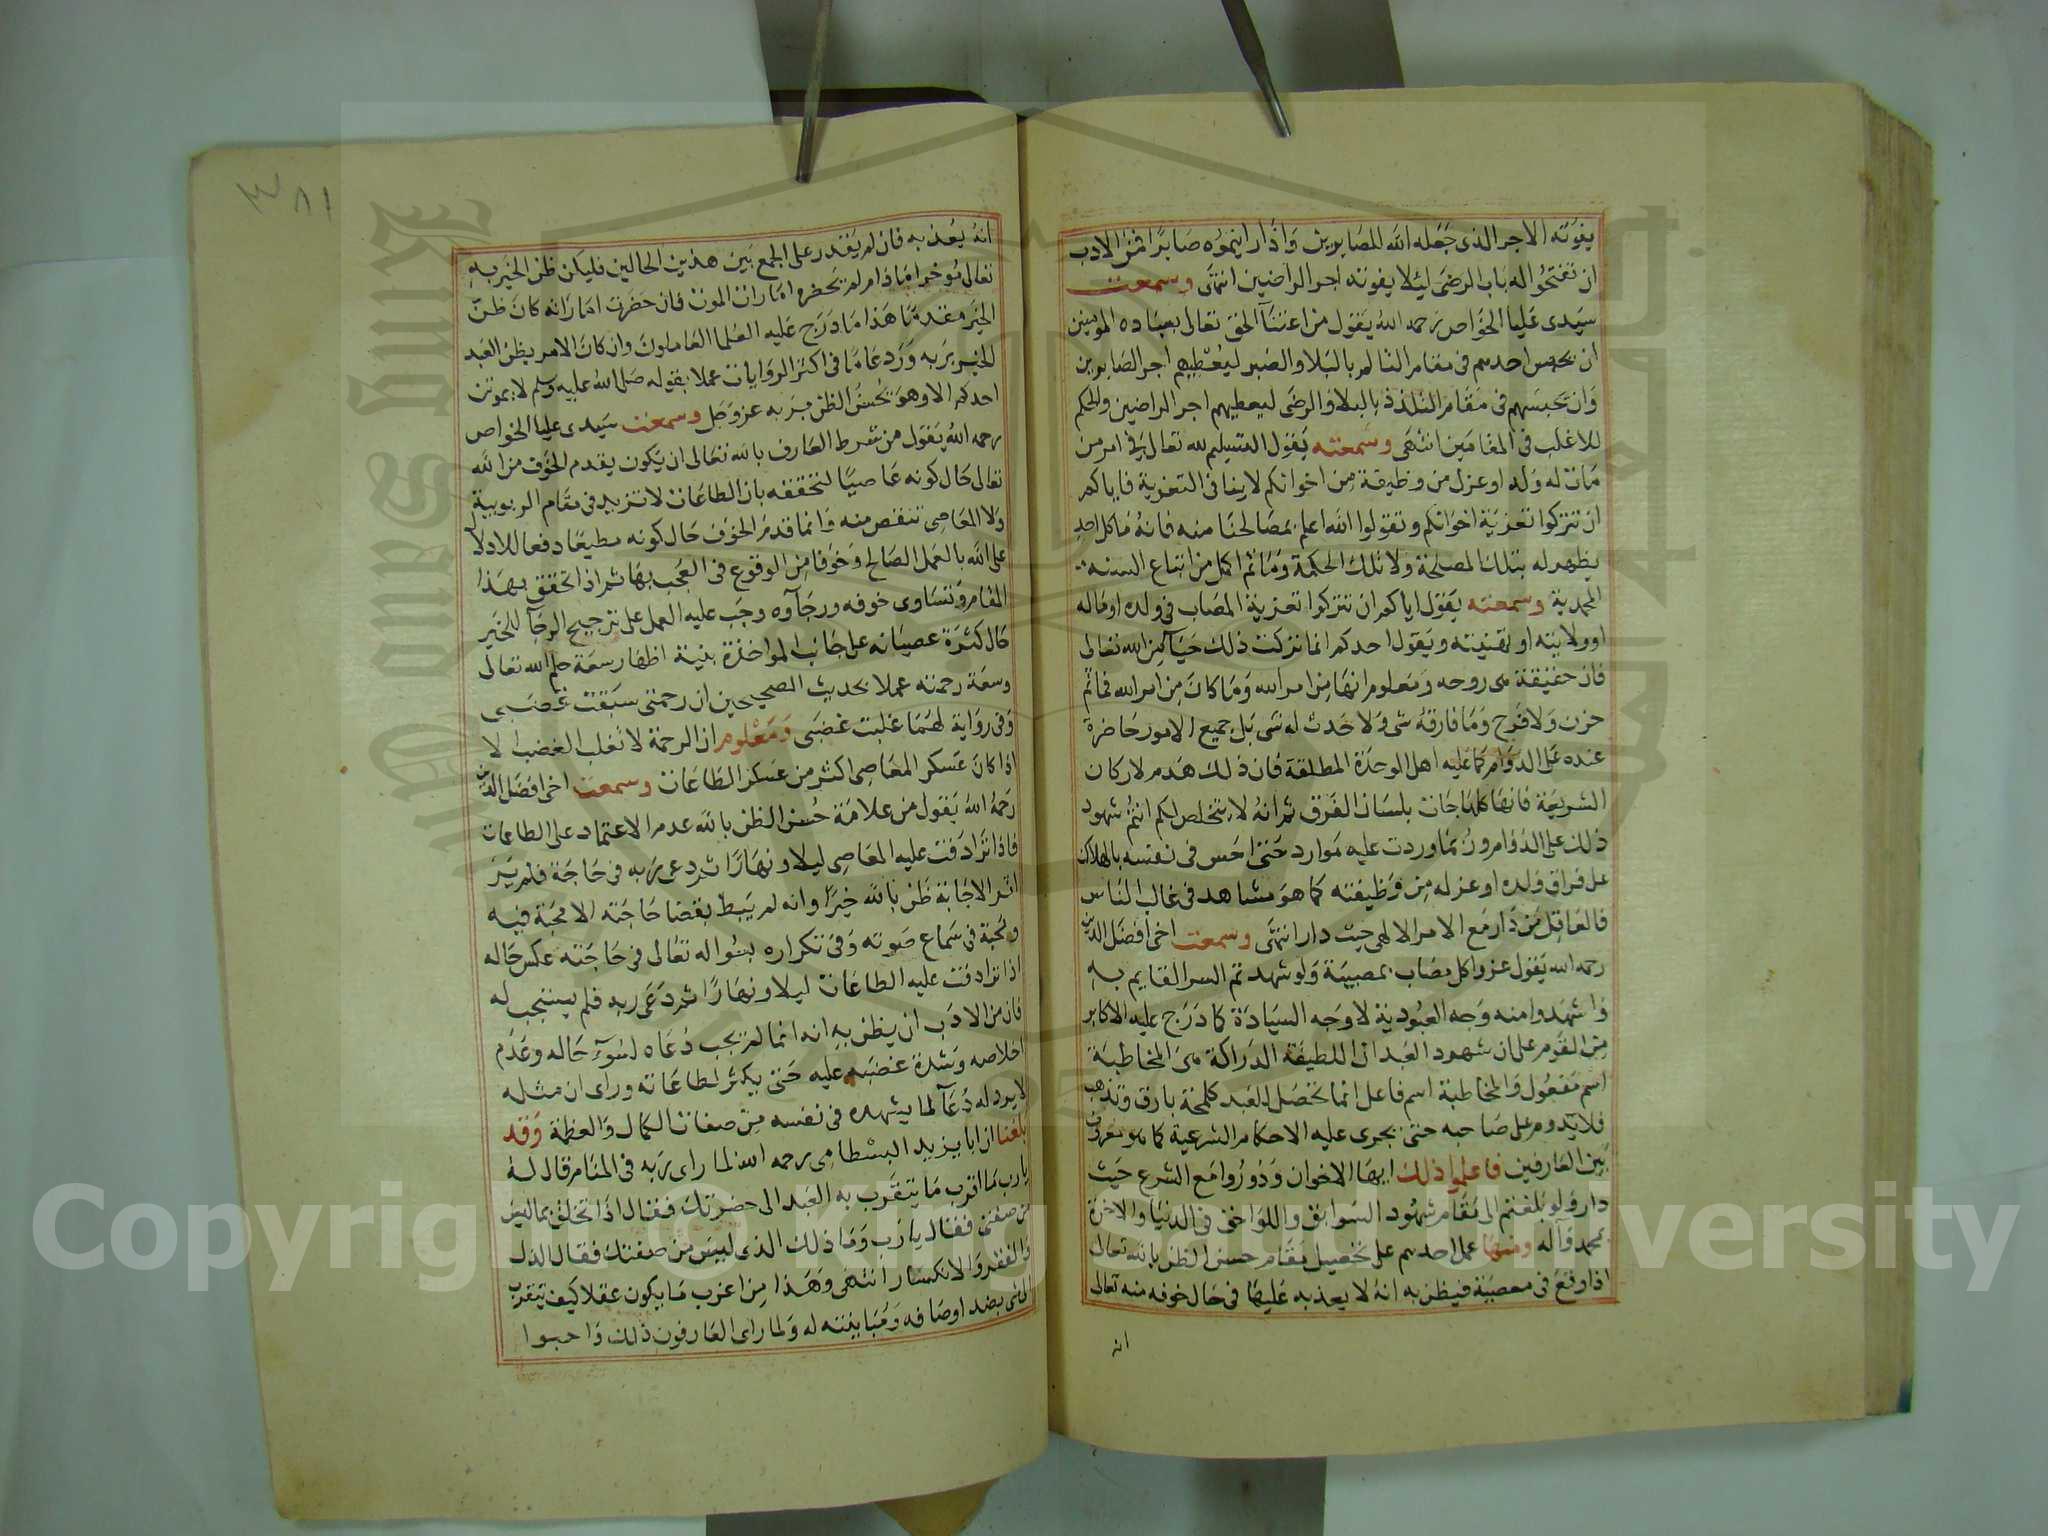 يفوته الاجر الذى جعله الله للصابرين واذا رايتموه صابرا فمن الادب
ان تفتحوا له باب الرضى ليلا يفوته اجر الراضين انتهى وسمعت
سيدى عليا الخواص رحمه الله يقول من اعتنا الحق تعالى بعباده المومنين
ان يحبس احدهم فى مقام التالم بالبلا والصبر ليعطيهم اجر الصابرين
وان يحبسهم فى مقام التلذذ بالبلا والرضى ليعطيهم اجر الراضين والحكم
للاغلب فى المقامين انتهى وسمعته يقول التسليم لله تعالى فى امر من
مات له ولد او عزل من وظيفة من اخوانكم لا ينافى التعزية فاياكم
ان تتركوا تعزية اخوانكم وتقولوا الله اعلم بمصالحنا منه فانه ما كل احد
يظهر له بتلك المصلحة ولا تلك الحكمة وما ثم اكمل من اتباع السنه
المحمدية وسمعته يقول اياكم ان تتركوا تعزية المصاب فى ولده او ماله
او ولايته او ويقول احدكم انما تركت ذلك حيآ من الله تعالى
فان حقيقة هى روحه ومعلوم انها من امر الله وما كان من امر الله فما ثم
حزن ولا فرح وما فارقه شى ولا حدث له شى بل جميع الامور حاضرة
عنده على الدوام كما عليه اهل الوحدة المطلقة فان ذلك هدم لاركان
الشريعة فانها كلها جات بلسان الفرق ثم انه لا يتخلص لكم انتم شهود
ذلك على الدوام وربما وردت عليه موارد حتى احس فى نفسه بالهلاك
على فراق ولده او عزله من وظيفته كما هو مشاهد فى غالب الناس
فالعاقل من دار مع الامر الالهى حيث دار انتهى وسمعت اخى افضل الدين
رحمه الله يقول عزوا كل مصاب بمصيبة ولو شهدتم السر القايم به
واشهدوا منه وجه العبودية لا وجه السيادة كما درج عليه الاكابر
من القوم على ان شهود العبد ان اللطيفة الدراكة هى المخاطبة
اسم مفعول والمخاطبة اسم فاعل انما تحصل للعبد كلمحة بارق وتذهب
فلا يدوم على صاحبه حتى يجرى عليه الاحكام الشرعية كما هو معروف
بين العارفين فاعلموا ذلك ايها الاخوان ودوروا مع الشرع حيث
دار ولو بلغتم الى مقام شهود السوابق واللواحق فى الدنيا والاخرة
بمحمد وآله ومنها عمل احدهم على تحصيل مقام حسن الظن بالله تعالى
اذا وقع فى معصية فيظن به انه لا يعذبه عليها فى حال خوفه منه تعالى
انه
٣٨١
انه يعذبه فان لم يقدر على الجمع بين هذين الحالين فليكن ظن الخير به
تعالى موخرا ما دام لم تحضره امارات الموت فان حضرت اماراته كان ظن
الخير مقدما هذا ما درج عليه العلما العاملون وان كان الامر بظن العبد
الخير بربه ورد عاما فى اكثر الروايات عملا بقوله صلى الله عليه وسلم لا يموتن
احدكم الا وهو يحسن الظن بربه عز وجل وسمعت سيدى عليا الخواص
رحمه الله يقول من شرط العارف بالله تعالى ان يكون يقدم الخوف من الله
تعالى حال كونه عاصيا لتحققه بان الطاعات لا تزيد فى مقام الربوبية
ولا المعاصى تنقص منه وانما قدم الخوف حال كونه مطيعا دفعا للادلال
على الله بالعمل الصالح وخوفا من الوقوع فى العجب بها ثم اذا تحقق بهذا
المقام وتساوى خوفه ورجآوه وجب عليه العمل على ترجيح الرجآ للخير
حال كثرة عصيانه على جانب المواخذة بنية اظهار سعة حلم الله تعالى
وسعة رحمته عملا بحديث الصحيحين ان رحمتى سبقت غضبى
وفى رواية لهما غلبت غضبى ومعلوم ان الرحمة لا تغلب الغضب الا
اذا كان عسكر المعاصى اكثر من عسكر الطاعات وسمعت اخى افضل الدين
رحمه الله يقول من علامة حسن الظن بالله عدم الاعتماد على الطاعات
فاذا ترادفت عليه المعاصى ليلا ونهارا ثم دعى ربه فى حاجة فلم ير
اثر الاجابة ظن بالله خيرا وانه لم يبط بقضا حاجته الا محبة فيه
ومحبة فى سماع صوته وفى تكراره بسواله تعالى فى حاجته عكس حاله
اذا ترادفت عليه الطاعات ليلا ونهارا ثم دعى ربه فلم يستجب له
فان من الادب ان يظن به انه انما لم يجب دعاه لسوء حاله وعدم
اخلاصه وشدة غضبه عليه حتى يكثر لطاعاته وراى ان مثله
لا يرد له دعآ لما يشهده فى نفسه من صفات الكمال والعظمة وقد
بلغنا ان ابا يزيد البسطامى رحمه الله لما راى ربه فى المنام قال له
يا رب بما اتقرب ما يتقرب به العبد الى حضرتك فقال اذا تخلق بما ليس
من صفتى فقال يا رب وما ذلك الذى ليس من صفتك فقال الذل
والفقر والانكسار انتهى وهذا من اغرب ما يكون عقلا كيف يتقرب
الى شى بضد اوصافه ومباينته له ولما راى العارفون ذلك واحبوا
Copyright © King Saud University